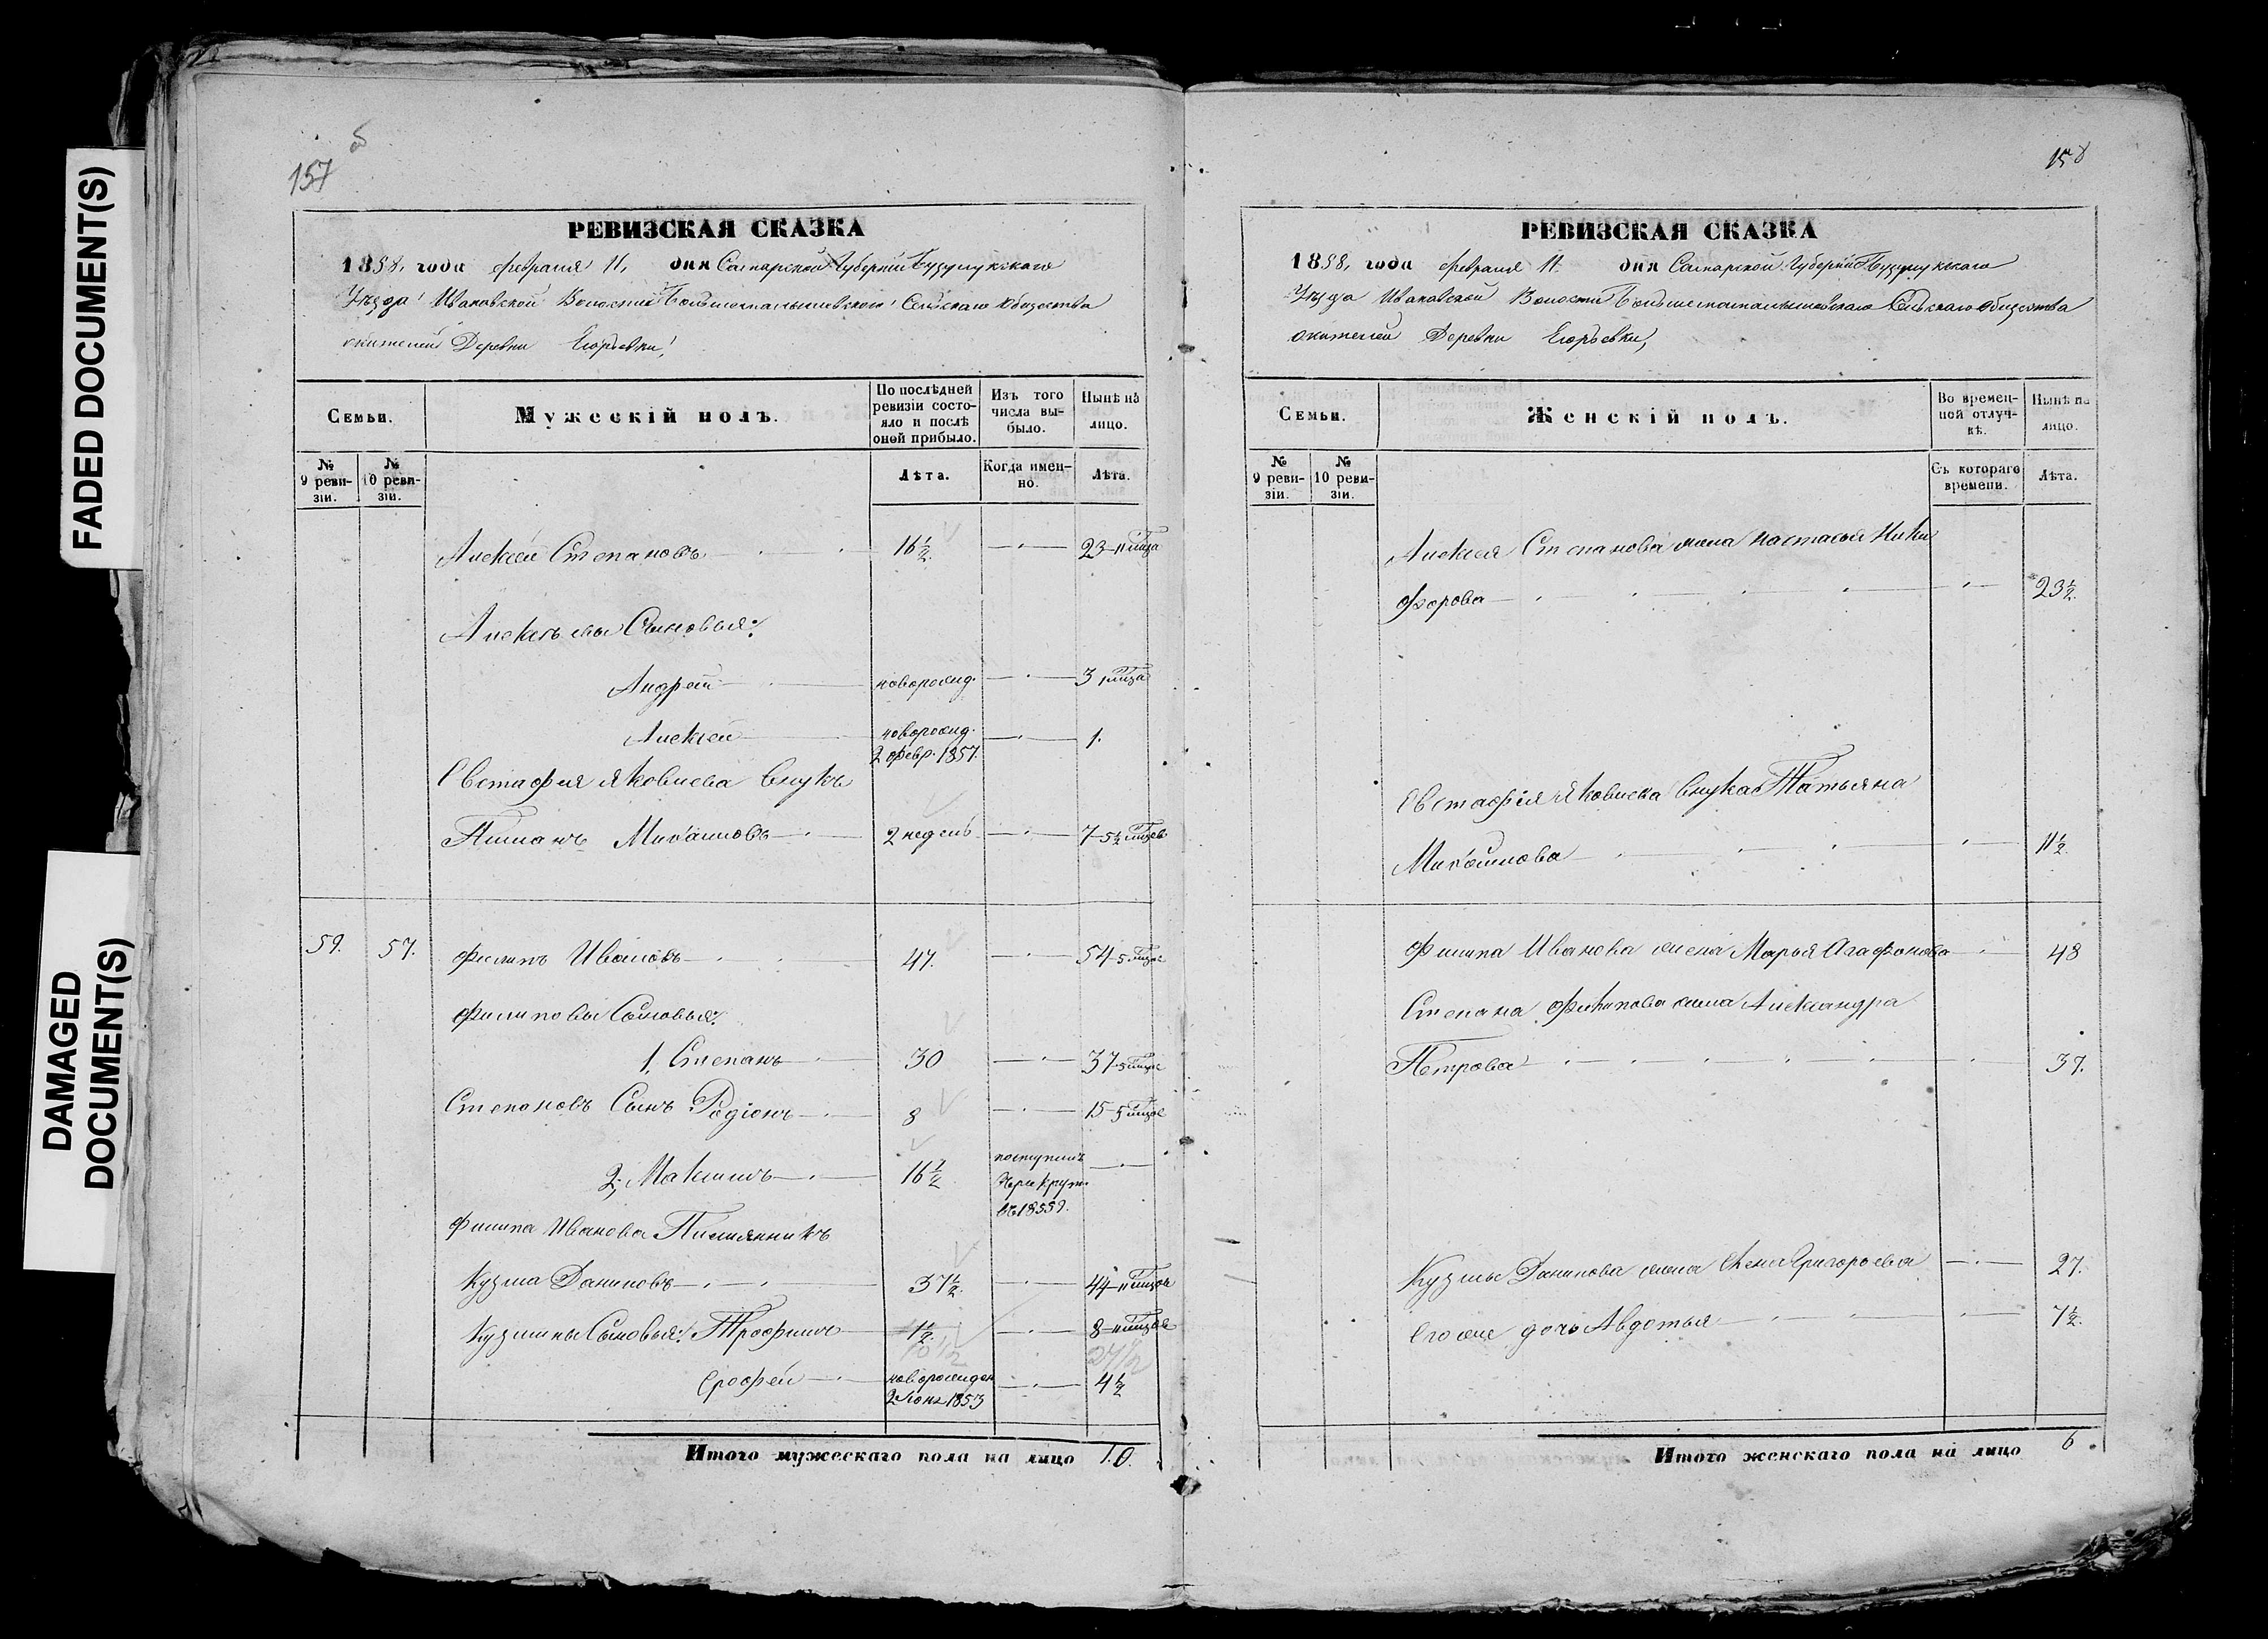 FADED DOCUMENT(S)
DAMAGED
DOCUMENT(S)
157
РЕВИЗСКАЯ СКАЗКА
1858, года февраля 11, дня Самарской Губерніи Бузулукскаго
Уѣзда Ивановской Волости Сельскаго Общества
жителей Деревни Егорьевки,
Семьи.
Мужескій полъ.
По послѣдней
ревизіи состо-
яло и послѣ
оной прибыло.
Изъ того
числа вы-
было.
Нынѣ на
лицо.
№
9 реви-
зіи.
№
10 реви-
зіи.
Лѣта.
Когда имен-
но.
Лѣта.
Алексѣй Степановъ 16½ 23
Алексѣевы Сыновья:
Андрей новорожд. 3
Алексѣй новорожд. 1.
2 февр. 1857.
Евстафія Яковлева внукъ
Михайловъ 2 недель 7
59. 57. Филипъ Ивановъ 47. 54
Филиповы Сыновья:
1, Степанъ 30 37
Степановъ Сынъ Родіонъ 8 15
2, Максимъ 16½ поступилъ
въ рекрут.
въ 1855 г.
Филипа Иванова Племянникъ
Кузма Даниловъ 37½ 44
Кузмины Сыновья: Трофимъ 1½ 8
Ерофей новорожден 4½
1853
Итого мужескаго пола на лицо 10.
158
РЕВИЗСКАЯ СКАЗКА
1858, года февраля 11. дня Самарской Губерніи Бузулукскаго
Уѣзда Ивановской Волости Сельскаго Общества
жителей Деревни Егорьевки,
Семьи.
Женскій полъ.
Во времен-
ной отлуч-
кѣ.
Нынѣ на
лицо.
№
9 реви-
зіи.
№
10 реви-
зіи.
Съ котораго
времени.
Лѣта.
Алексея Степанова жена Настасья Ники
форова 23½
Евстафія Яковлева внука Татьяна
Михайлова 11½
Филипа Иванова жена Марья Агафонова 48
Степана Филипова жена Александра
Петрова 37.
Кузмы Данилова жена Григорьева 27.
Его же дочь Авдотья 7½.
Итого женскаго пола на лицо 6.